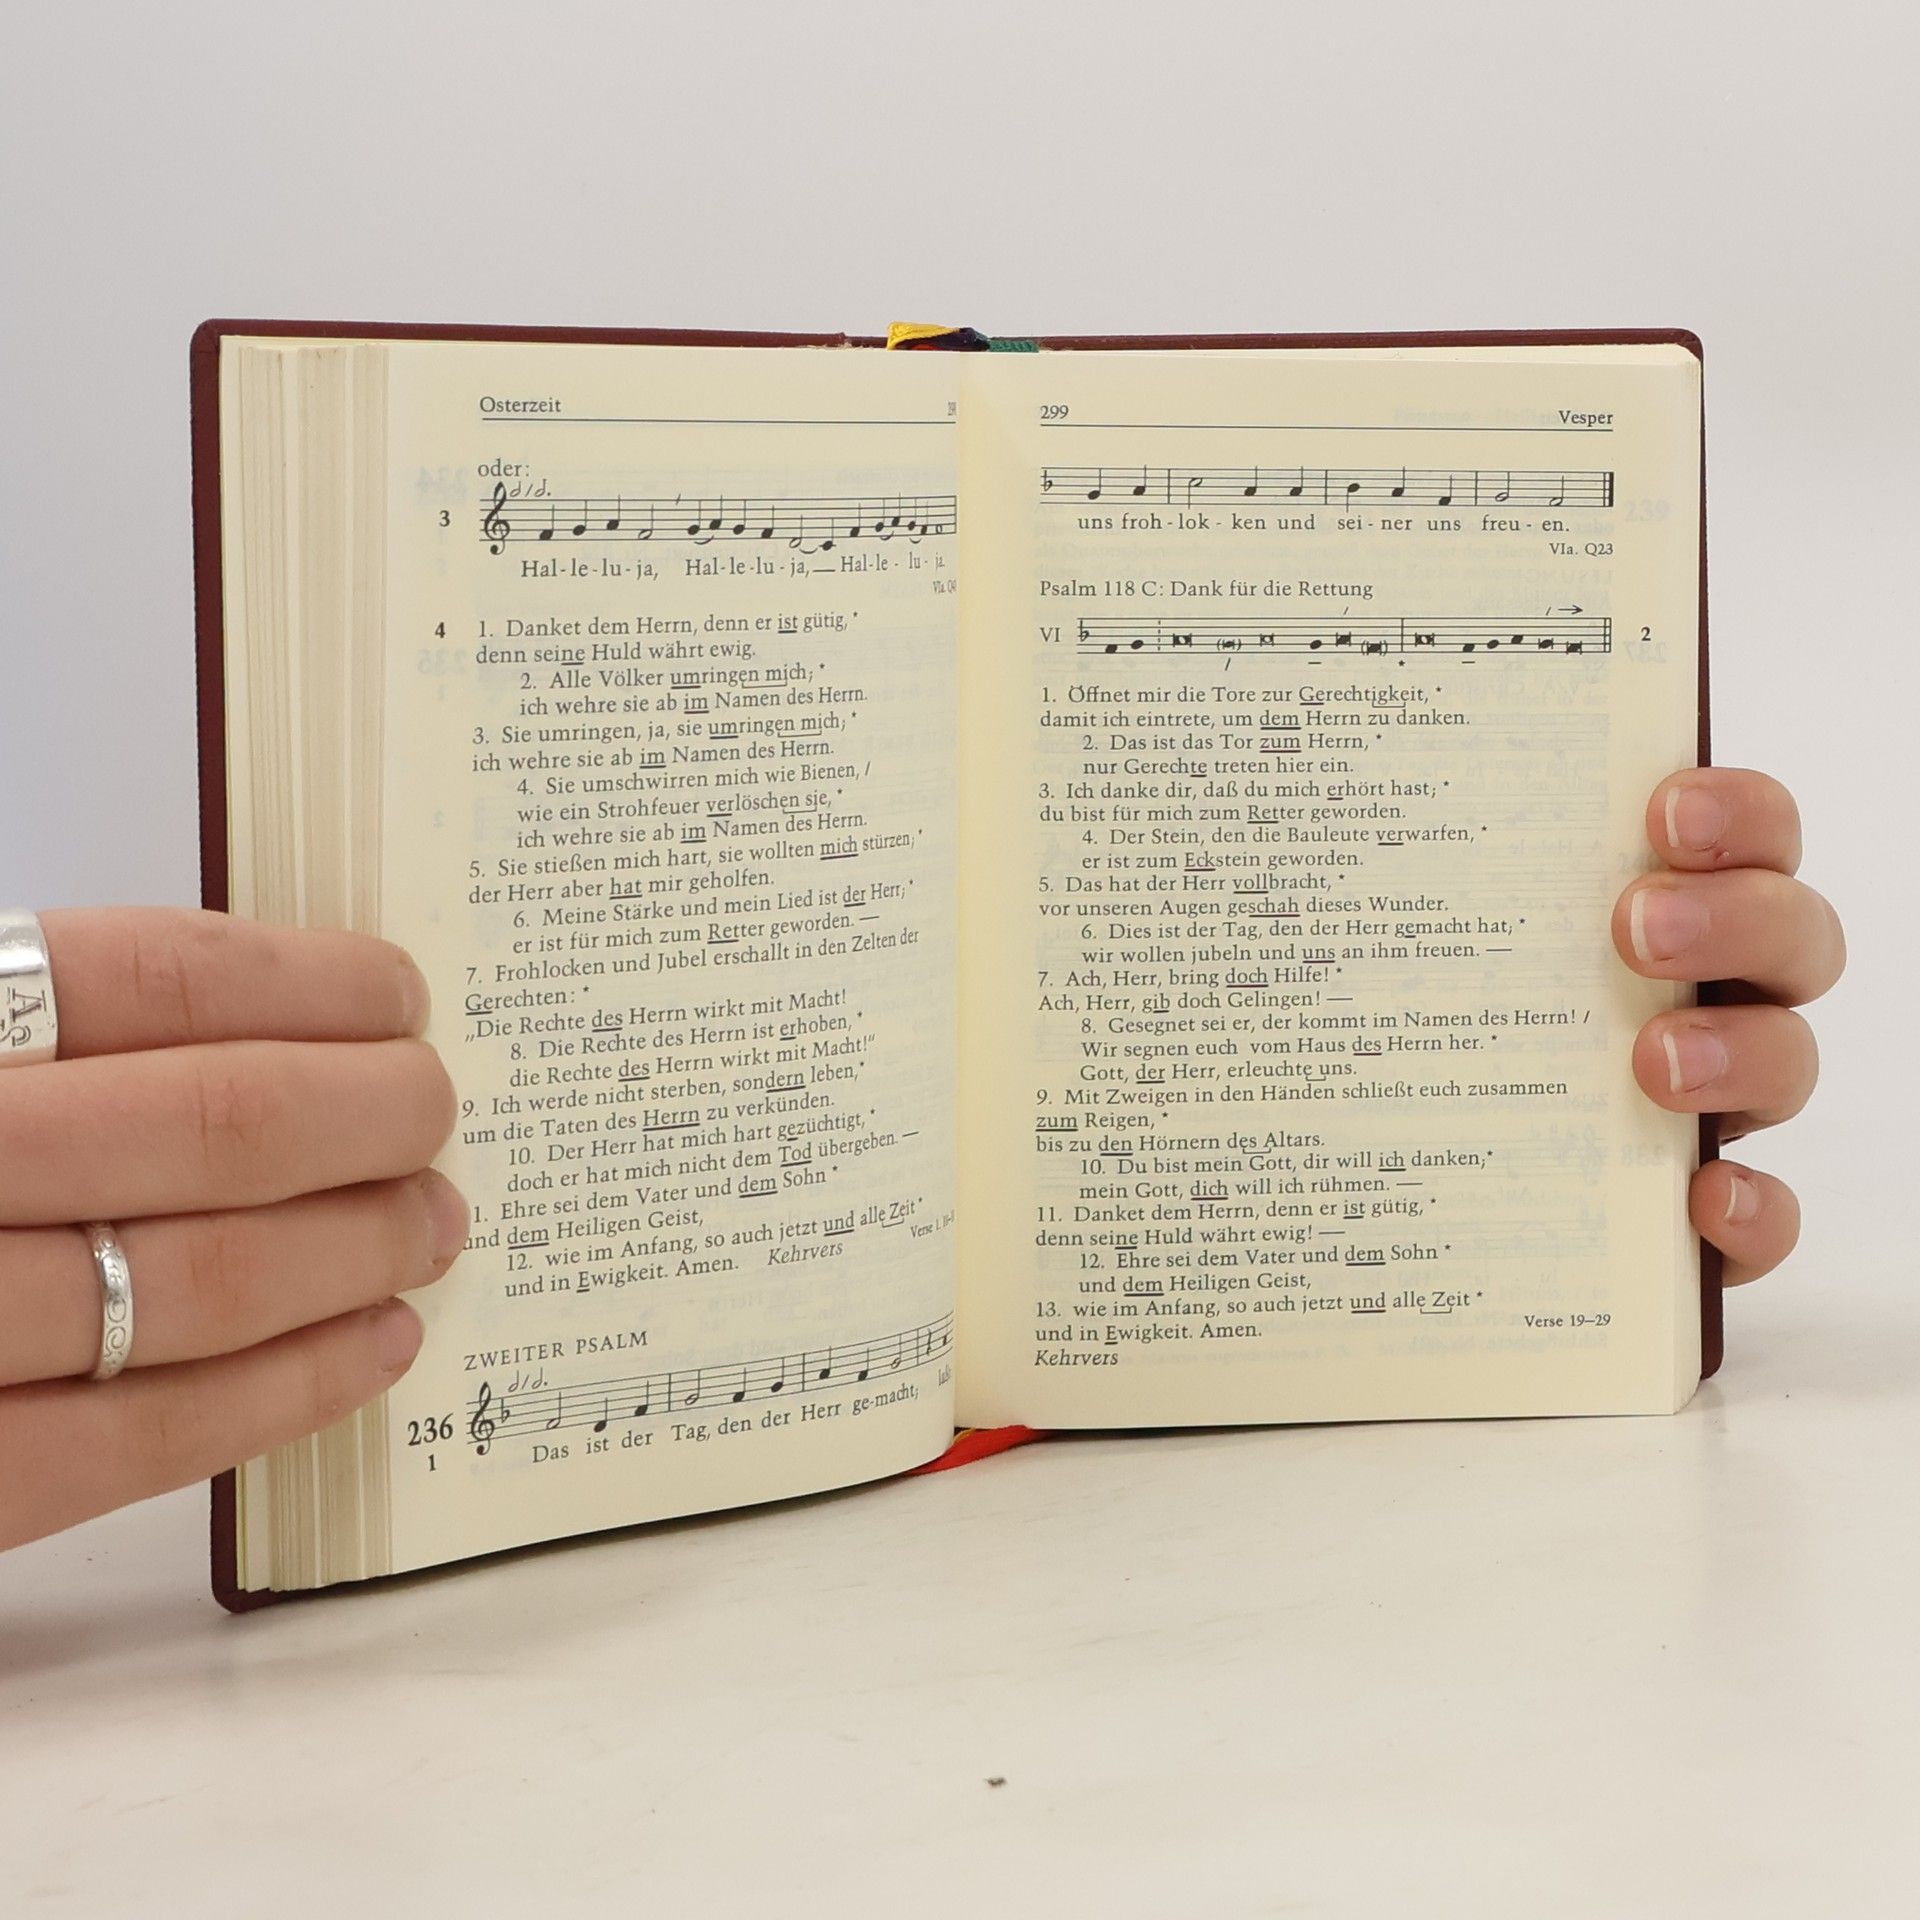 Osterzeit
oder:
3
Hal-le-lu-ja, Hal-le-lu-ja, Hal-le-lu-ja.
VIa.
4 1. Danket dem Herrn, denn er ist gütig, *
denn seine Huld währt ewig.
2. Alle Völker umringen mich; *
ich wehre sie ab im Namen des Herrn.
3. Sie umringen, ja, sie umringen mich; *
ich wehre sie ab im Namen des Herrn.
4. Sie umschwirren mich wie Bienen, /
wie ein Strohfeuer verlöschen sie, *
ich wehre sie ab im Namen des Herrn.
5. Sie stießen mich hart, sie wollten mich stürzen; *
der Herr aber hat mir geholfen.
6. Meine Stärke und mein Lied ist der Herr; *
er ist für mich zum Retter geworden. —
7. Frohlocken und Jubel erschallt in den Zelten der
Gerechten: *
„Die Rechte des Herrn wirkt mit Macht!
8. Die Rechte des Herrn ist erhoben, *
die Rechte des Herrn wirkt mit Macht!“
9. Ich werde nicht sterben, sondern leben, *
um die Taten des Herrn zu verkünden.
10. Der Herr hat mich hart gezüchtigt, *
doch er hat mich nicht dem Tod übergeben. —
1. Ehre sei dem Vater und dem Sohn *
und dem Heiligen Geist,
12. wie im Anfang, so auch jetzt und alle Zeit *
und in Ewigkeit. Amen. Kehrvers
Verse 1.
ZWEITER PSALM
236
1
Das ist der Tag, den der Herr ge-macht;
299 Vesper
uns froh-lok-ken und sei-ner uns freu-en.
VIa. Q23
Psalm 118 C: Dank für die Rettung
VI
2
1. Öffnet mir die Tore zur Gerechtigkeit, *
damit ich eintrete, um dem Herrn zu danken.
2. Das ist das Tor zum Herrn, *
nur Gerechte treten hier ein.
3. Ich danke dir, daß du mich erhört hast; *
du bist für mich zum Retter geworden.
4. Der Stein, den die Bauleute verwarfen, *
er ist zum Eckstein geworden.
5. Das hat der Herr vollbracht, *
vor unseren Augen geschah dieses Wunder.
6. Dies ist der Tag, den der Herr gemacht hat; *
wir wollen jubeln und uns an ihm freuen. —
7. Ach, Herr, bring doch Hilfe! *
Ach, Herr, gib doch Gelingen! —
8. Gesegnet sei er, der kommt im Namen des Herrn! /
Wir segnen euch vom Haus des Herrn her. *
Gott, der Herr, erleuchte uns.
9. Mit Zweigen in den Händen schließt euch zusammen
zum Reigen, *
bis zu den Hörnern des Altars.
10. Du bist mein Gott, dir will ich danken; *
mein Gott, dich will ich rühmen. —
11. Danket dem Herrn, denn er ist gütig, *
denn seine Huld währt ewig! —
12. Ehre sei dem Vater und dem Sohn *
und dem Heiligen Geist,
13. wie im Anfang, so auch jetzt und alle Zeit *
und in Ewigkeit. Amen.
Verse 19–29
Kehrvers